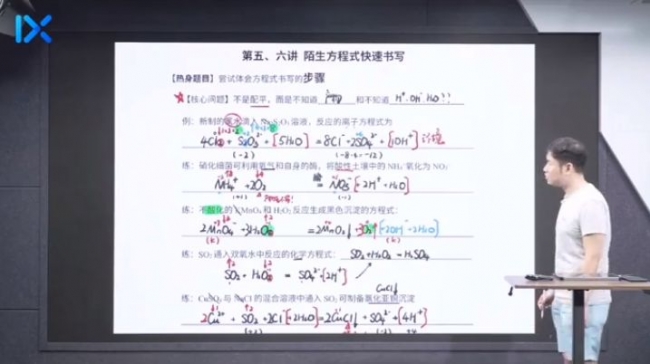 第五、六讲 陌生方程式快速书写
【热身题目】尝试体会方程式书写的步骤
【核心问题】不是配平，而是不知道 和不知道 H⁺.OH⁻.H₂O??
例：新制的氯水滴入 Na₂S₂O₃ 溶液，反应的离子方程式为
4Cl₂ + S₂O₃²⁻ + [5H₂O] = 8Cl⁻ + 2SO₄²⁻ + [10H⁺]
(-2) (-8-4=-12)
练：硝化细菌可利用氧气和自身的酶，将酸性土壤中的 NH₄⁺氧化为 NO₃⁻
NH₄⁺ + 2O₂ = NO₃⁻ + [2H⁺ + H₂O]
练：不酸化的 KMnO₄ 和 H₂O₂ 反应生成黑色沉淀的方程式：
2MnO₄⁻ + 3H₂O₂ = 2MnO₂↓ + 3O₂↑ + [2OH⁻ + 2H₂O]
练：SO₂ 通入双氧水中反应的化学方程式： SO₂+H₂O₂=H₂SO₄
SO₂ + H₂O₂ = SO₄²⁻ + [2H⁺]
CuCl↓
练：CuSO₄ 与 NaCl 的混合溶液中通入 SO₂ 可制备氯化亚铜沉淀
2Cu²⁺ + SO₂ + 2Cl⁻ + [2H₂O] = 2CuCl↓ + SO₄²⁻ + [4H⁺]